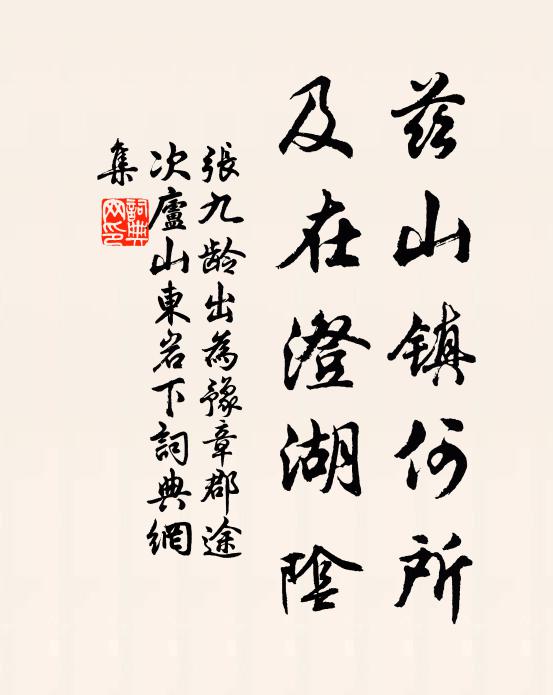 兹山镇何所
及在澄湖陰
張九龄出為豫章郡途
次廬山東岩下詞典網
集
詞典
网印